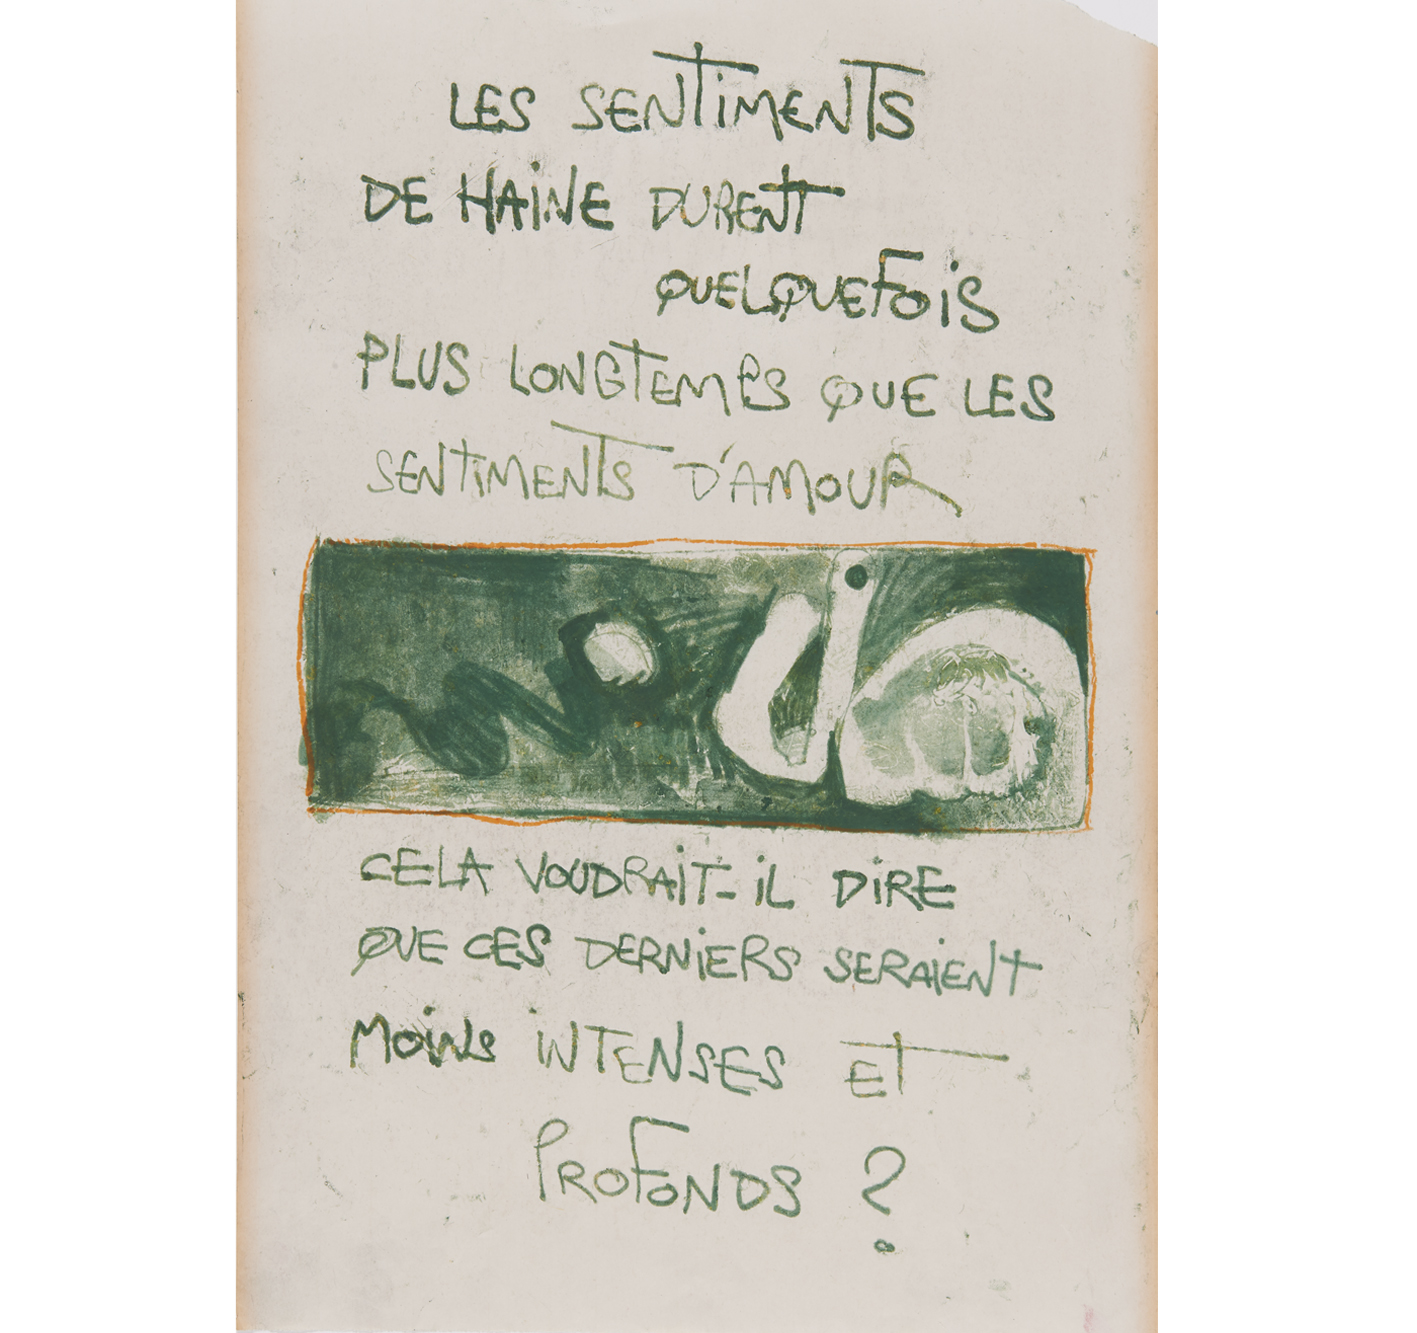 LES SENTIMENTS
DE HAINE DURENT
QUELQUEFOIS
PLUS LONGTEMPS QUE LES
SENTIMENTS D'AMOUR
CELA VOUDRAIT-IL DIRE
QUE CES DERNIERS SERAIENT
MOINS INTENSES ET
PROFONDS ?